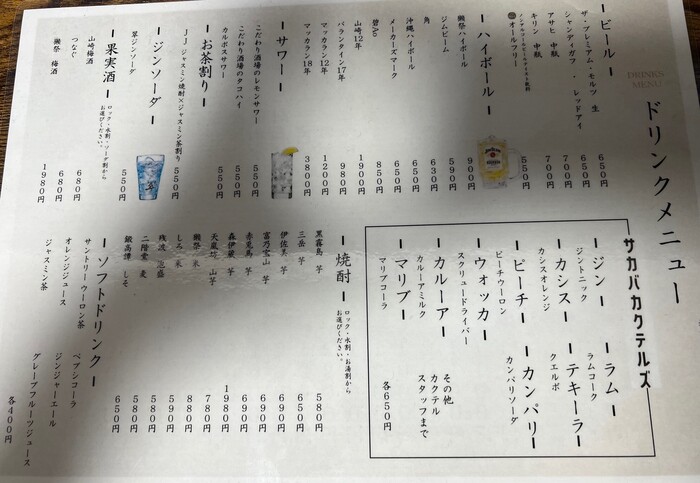 DRINKS
MENU
ドリンクメニュー
ービールー
ザ・プレミアム・モルツ 生 650円
シャンディガフ・レッドアイ 650円
アサヒ 中瓶 700円
キリン 中瓶 700円
オールフリー 550円
ーハイボールー
獺祭ハイボール 900円
ジムビーム 590円
角 630円
沖縄ハイボール 650円
メーカーズマーク 650円
碧Ao 850円
山崎12年 1900円
バランタイン17年 980円
マッカラン12年 1200円
マッカラン18年 3800円
ーサワーー
こだわり酒場のレモンサワー 550円
こだわり酒場のタコハイ 550円
カルボスサワー 550円
ーお茶割りー
JJ ジャスミン焼酎×ジャスミン茶割り 550円
ージンソーダー
翠ジンソーダ 550円
ー果実酒ー
ロック・水割・ソーダ割から
お選びください。
山崎梅酒 680円
つなぐ 680円
獺祭 梅酒 1980円
サカバカクテルズ
ージンー
ジントニック
ーカシスー
カシスオレンジ
ーピーチー
ピーチウーロン
ーウォッカー
スクリュードライバー
ーカルーアー
カルーアミルク
ーマリブー
マリブコーラ
ーラムー
ラムコーク
ーテキーラー
クエルボ
ーカンパリー
カンパリソーダ
その他
カクテル
スタッフまで
各650円
ー焼酎ー
ロック・水割・お湯割から
お選びください。
黒霧島 芋 580円
三岳 芋 650円
伊佐美 芋 690円
富乃宝山 芋 690円
赤兎馬 芋 690円
森伊蔵 芋 1980円
山芋 780円
獺祭 米 880円
しろ 米 580円
残波 泡盛 580円
二階堂 麦 580円
鍛高譚 しそ 650円
ーソフトドリンクー
サントリーウーロン茶
オレンジジュース
ジャスミン茶
ペプシコーラ
ジンジャーエール
グレープフルーツジュース
各400円